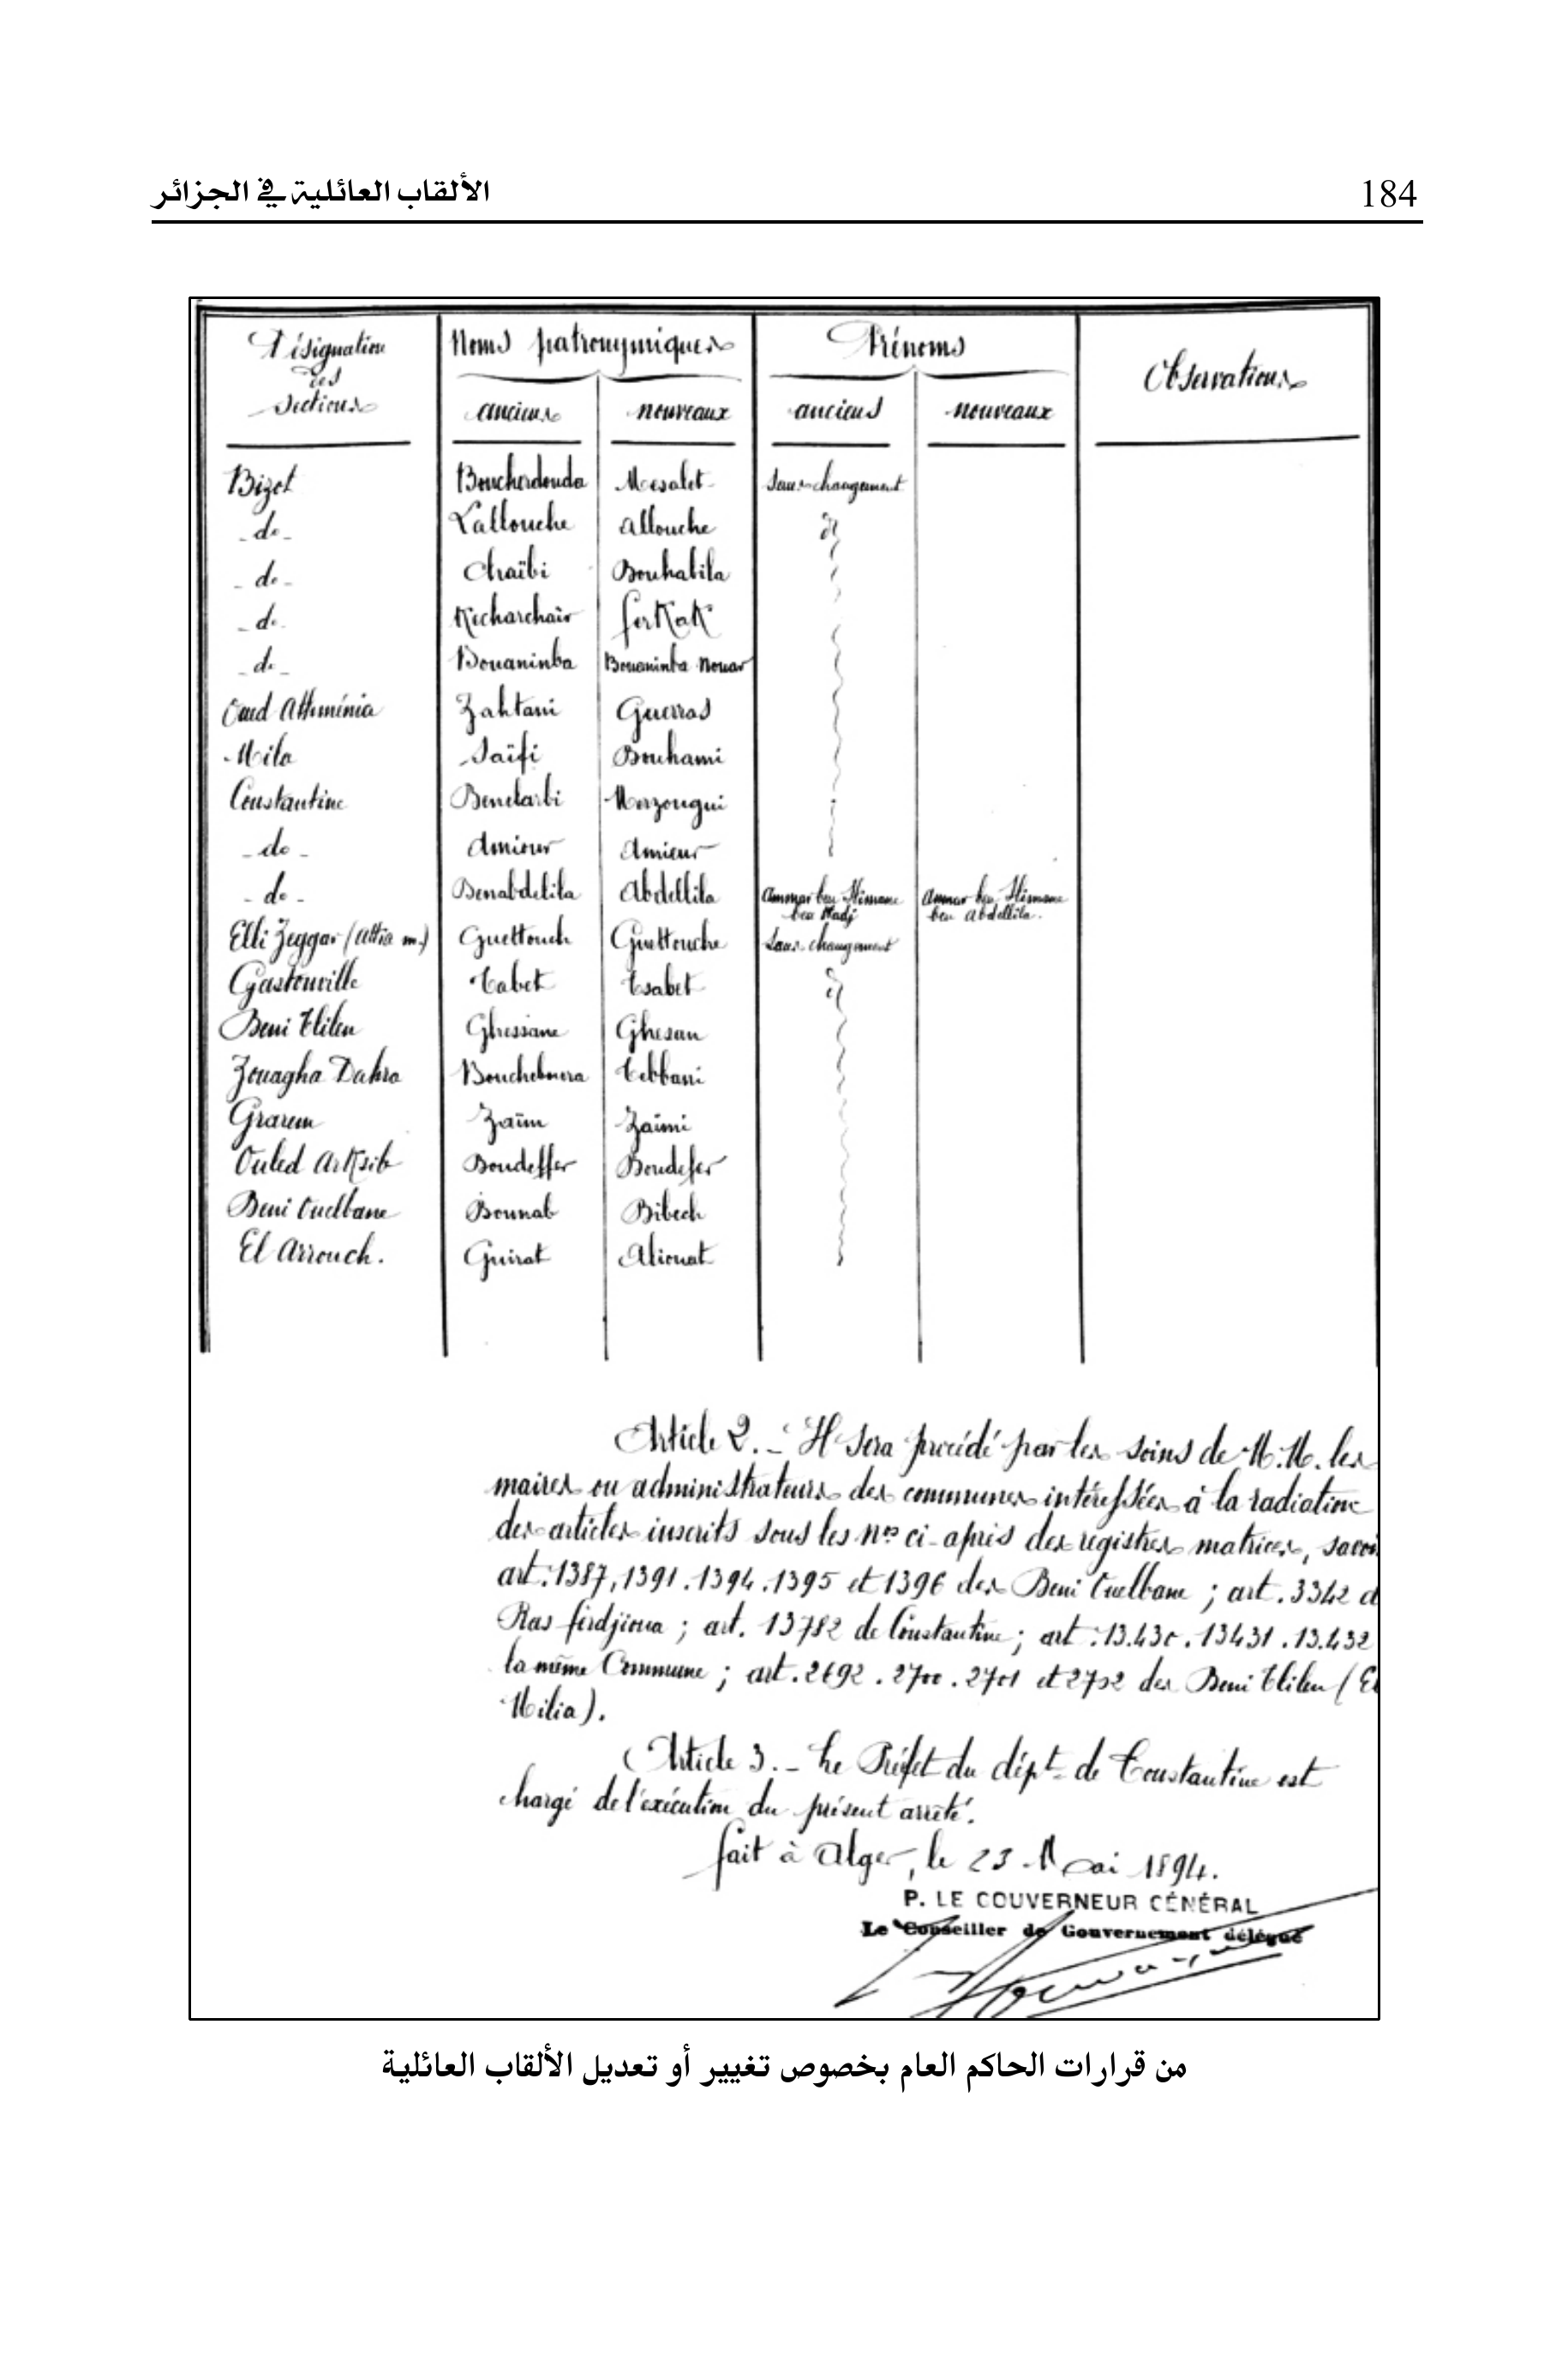 184 الألقاب العائلية في الجزائر
Désignation des Sections | Noms patronymiques | Prénoms | Observations
anciens | nouveaux | anciens | nouveaux
Bizot | Boucherdouda | Mesalet | Sans changement
- do - | Lallouche | Allouche | do
- do - | Chaïbi | Bouhabila
- do - | Kicharchair | Ferkak
- do - | Bouaninba | Bouaninba Nouar
Oued Athménia | Zahtani | Guerras
Mila | Saïfi | Bouhami
Constantine | Benelarbi | Merzougui
- do - | Amiour | Amieur
- do - | Benabdelila | Abdellila | Ammar ben Slimane ben Hadj | Ammar ben Slimane ben Abdellila.
Elli Zeggar (Attia m.) | Guettouch | Guettouche | Sans changement
Gastonville | Tabet | Tsabet | do
Beni Tlilen | Ghessane | Ghesan
Zouagha Dahra | Boucheboura | Tebbani
Grarem | Zaïm | Zaïmi
Ouled Arksib | Boudeffer | Boudefer
Beni Ouelbane | Bounab | Bibech
El Arrouch. | Guirat | Aliouat
Article 2. - Il sera procédé par les soins de M.M. les
maires ou administrateurs des communes intéressées à la radiation
des articles inscrits sous les nos ci-après des registres matrices, savoi
art. 1387, 1391. 1394. 1395 et 1396 des Beni Ouelbane ; art. 3342 d
Ras ferdjioua ; art. 13782 de Constantine ; art. 13.430. 13431. 13.432
la même Commune ; art. 2692. 2700. 2701 et 2702 des Beni Tlilen (El
Milia).
Article 3. - Le Préfet du dépt de Constantine est
chargé de l'exécution du présent arrêté.
fait à Alger, le 23 Mai 1894.
P. LE GOUVERNEUR GÉNÉRAL
Le Conseiller de Gouvernement délégué
من قرارات الحاكم العام بخصوص تغيير أو تعديل الألقاب العائلية